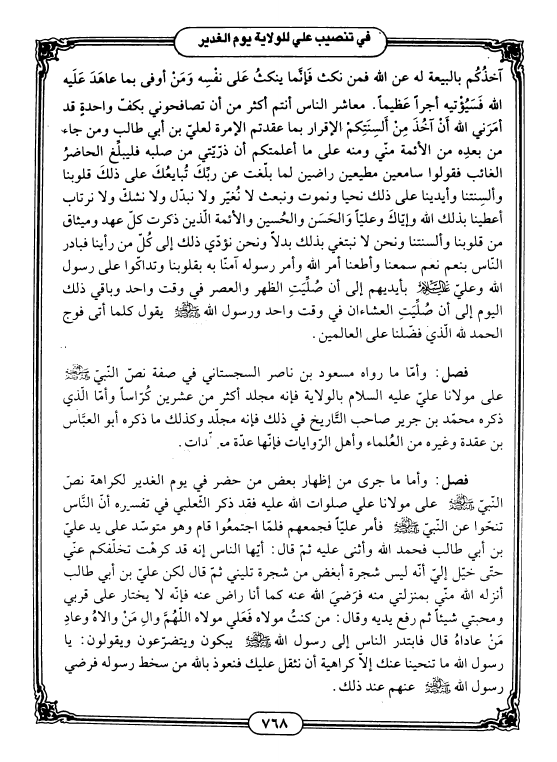 في تنصيب علي للولاية يوم الغدير
آخذُكُم بالبيعة له عن الله فمن نكث فَإنَّما ينكثُ عَلى نفْسِه وَمَنْ أوفى بما عاهَدَ عَلَيه
الله فَسَيُؤْتيه أجراً عَظيماً. معاشر الناس أنتم أكثر من أن تصافحوني بكفّ واحدةٍ قد
أمَرَني الله أنْ آخُذَ مِنْ ألسِنَتِكمْ الإقرار بما عقدتم الإمرة لعليّ بن أبي طالب ومن جاء
من بعدِه من الأئمة منّي ومنه على ما أعلمتكم أن ذرّيّتي من صلبه فليبلِّغ الحاضرُ
الغائب فقولوا سامعين مطيعين راضين لما بلّغت عن ربّكَ نُبايعُكَ على ذلكَ قلوبنا
وألسِنتنا وأيدينا على ذلك نحيا ونموت ونبعث لا نُغيّر ولا نبدّل ولا نشكّ ولا نرتاب
أعطينا بذلك الله وإيّاكَ وعليّاً وَالحَسَن والحُسين والأئمة الّذين ذكرت كلّ عهد وميثاق
من قلوبنا وألسنتنا ونحن لا نبتغي بذلك بدلاً ونحن نؤدّي ذلك إلى كُلّ من رأينا فبادر
النّاس بنعم نعم سمعنا وأطعنا أمر الله وأمر رسوله آمنّا به بقلوبنا وتداكّوا على رسول
الله وعليّ عليه السلام بأيديهم إلى أن صُلِّيَتِ الظهر والعصر في وقت واحد وباقي ذلك
اليوم إلى أن صُلِّيَتِ العشاءان في وقت واحد ورسول الله ﷺ يقول كلما أتى فوج
الحمد لله الّذي فضّلنا على العالمين.
فصل: وأمّا ما رواه مسعود بن ناصر السجستاني في صفة نصّ النّبيّ ﷺ
على مولانا عليّ عليه السلام بالولاية فإنه مجلد أكثر من عشرين كُرّاساً وأمّا الّذي
ذكره محمّد بن جرير صاحب التّاريخ في ذلك فإنه مجلّد وكذلك ما ذكره أبو العبّاس
بن عقدة وغيره من العُلماء وأهل الرّوايات فإنّها عدّة
فصل: وأما ما جرى من إظهار بعض من حضر في يوم الغدير لكراهة نصّ
النّبيّ ﷺ على مولانا علي صلوات الله عليه فقد ذكر الثّعلبي في تفسيره أنّ النّاس
تنحّوا عن النّبيّ ﷺ فأمر عليّاً فجمعهم فلمّا اجتمعُوا قام وهو متوسّد على يد عليّ
بن أبي طالب فحمد الله وأثنى عليه ثمّ قال: أيّها الناس إنه قد كرهْت تخلّفكم عنّي
حتّى خيّل إليّ أنّه ليس شجرة أبغض من شجرة تليني ثمّ قال لكن عليّ بن أبي طالب
أنزله الله منّي بمنزلتي منه فرَضيَ اللهُ عنه كما أنا راض عنه فإنّه لا يختار على قربي
ومحبتي شيئاً ثم رفع يديه وقال: من كنتُ مولاه فَعَلي مولاه اللّهُمَّ والِ مَنْ والاهُ وعادِ
مَنْ عاداهُ قال فابتدر الناس إلى رسول الله ﷺ يبكون ويتضرّعون ويقولون: يا
رسول الله ما تنحينا عنك إلاّ كراهية أن نثقل عليك فنعوذ بالله من سخط رسوله فرضي
رسول الله ﷺ عنهم عند ذلك.
٧٦٨